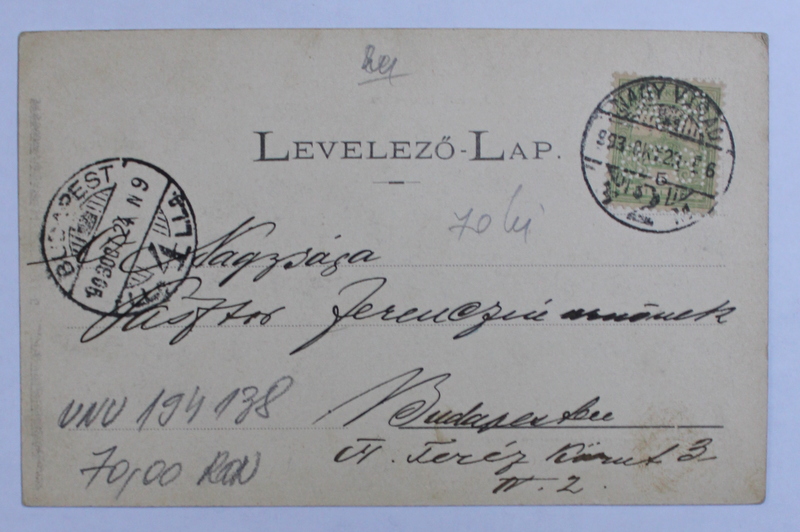 LEVELEZŐ-LAP.
NAGY VÁRAD
903 OKT 23
BUDAPEST
903 OKT 24 N 9
70 lei
Ő Nagysága
Pásztor Ferenczné urnőnek
Budapesten
VI. Teréz Körut 3
III. 2.
VNV 194 138
70,00 RON